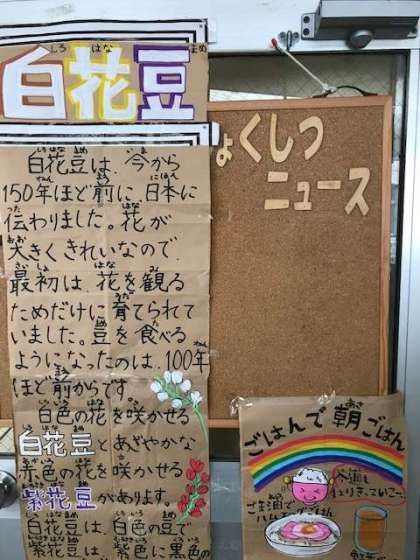 しろ はな まめ
白花豆
白花豆は、今から
150年ほど前に、日本に
伝わりました。花が
大きくきれいなので、
最初は、花を観る
ためだけに育てられて
いました。豆を食べる
ようになったのは、100年
ほど前からです
白色の花を咲かせる
白花豆とあざやかな
赤色の花を咲かせる
紫花豆があります。
白花豆は、白色の豆で
紫花豆は、紫色に黒色の
ょくしつ
ニュース
ごはんで朝ごはん
ごま油で
ハムエッグごはん